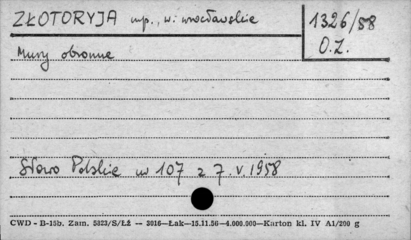 ZŁOTORYJA mp., w. wrocławskie
1326/58
O.Z.
Mury obronne
Słowo Polskie nr 107 z 7.V.1958
CWD - B-15b. Zam. 5823/S/Łż — 3016—Łak—15.11.56—4.000.000—Karton kl. IV A1/200 g